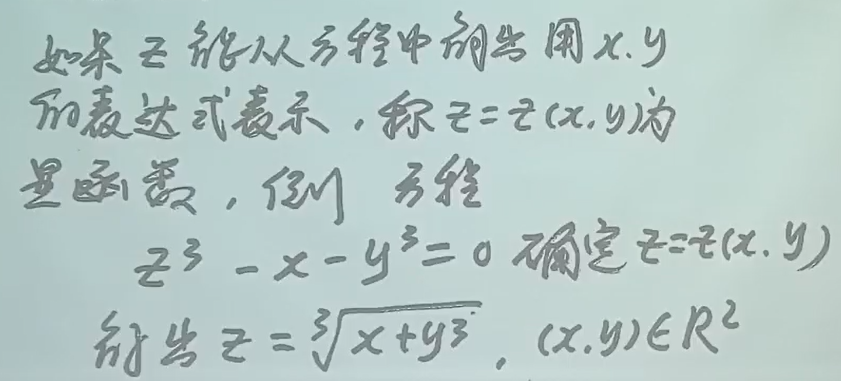 如果 z 能从方程中解出用 x.y
的表达式表示，称 z=z(x,y)为
显函数，例 方程
z³ - x - y³ = 0 确定 z=z(x,y)
解出 z = ∛(x+y³) , (x,y)∈R²